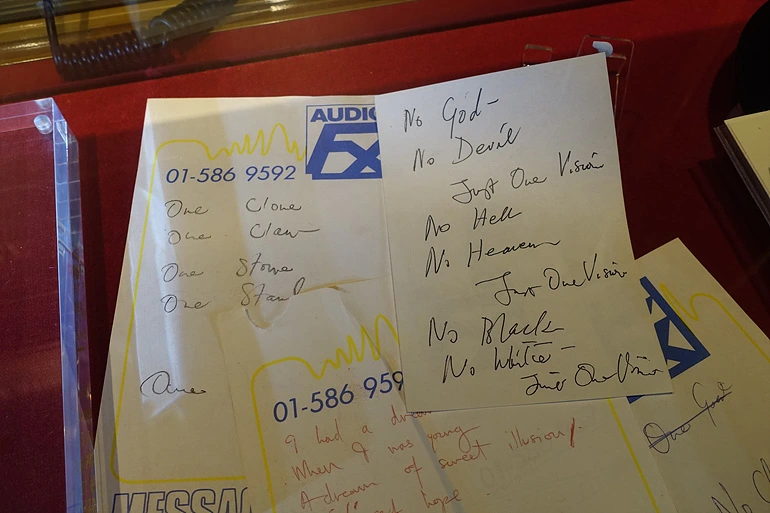 AUDIO
FX
01-586 9592
One Clone
One Claim
One Stone
One Stand
No God-
No Devil
Just One Vision
No Hell
No Heaven
Just One Vision
No Black
No White -
Just One Vision
01-586 959
I had a dream
When I was young
A dream of sweet illusion,
hope
MESSAG
One God
No